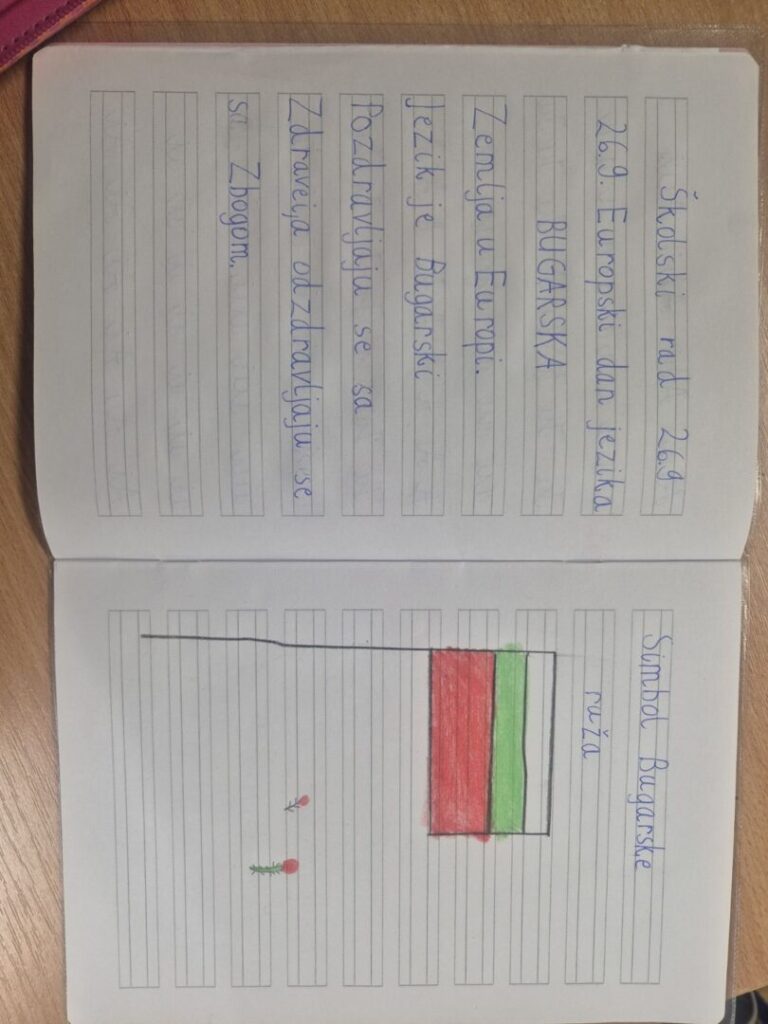 Školski rad 26.9
26.9. Europski dan jezika
BUGARSKA
Zemlja u Europi.
Jezik je Bugarski
Pozdravljaju se sa
Zdraveija odzdravljaju se
sa Zbogom.
Simbol Bugarske
ruža